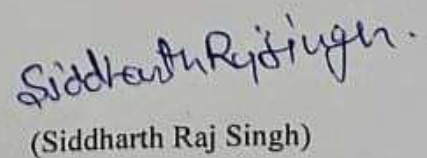 Siddharth Raj Singh.
(Siddharth Raj Singh)